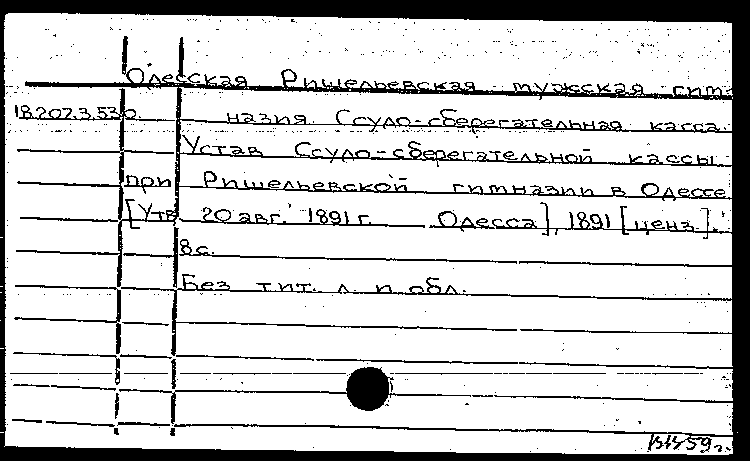 Одесская Ришельевская мужская гим-
18.207.3.530. назия. Ссудо-сберегательная касса.
Устав Ссудо-сберегательной кассы
при Ришельевской гимназии в Одессе
[Утв. 20 авг. 1891 г. Одесса], 1891 [ценз.].
8с.
Без тит. л. и обл.
59г.